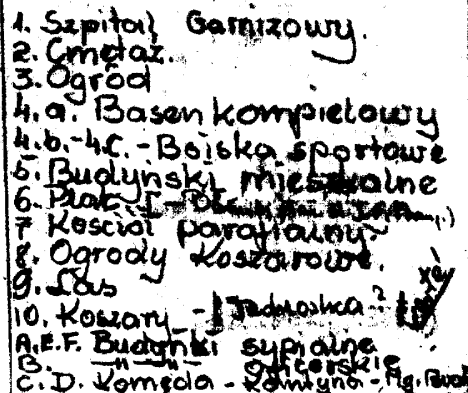 1. Szpital Garnizowy.
2. Cmętaż.
3. Ogród
4.a. Basen kompielowy
4.b.-4.c. - Boiska sportowe
5. Budyński mieszkalne
6. Plac
7 Kościół parafialny.
8. Ogrody Koszarowe.
9. Las
10. Koszary - Jednostka?
A.E.F. Budynki sypialne
B. -"- -"- oficerskie
C. D. Komęda - Kantyna - Mg.